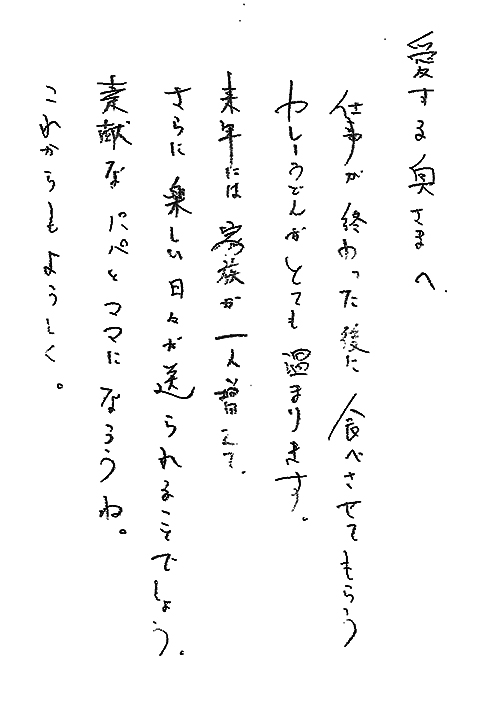 愛する奥さまへ
仕事が終わった後に食べさせてもらう
カレーうどんがとても温まります。
来年には家族が一人増えて、
さらに楽しい日々が送られることでしょう。
素献なパパとママになろうね。
これからもようしく。